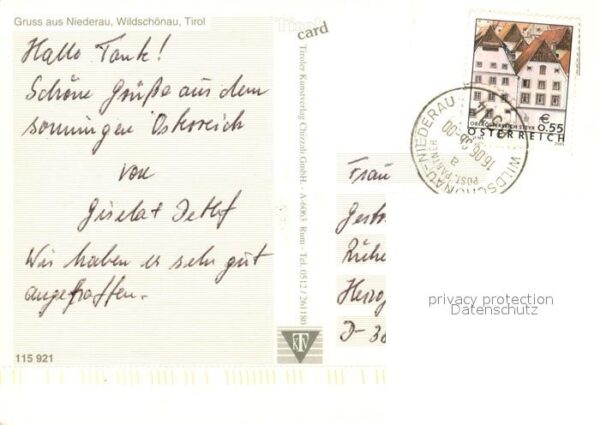 Gruss aus Niederau, Wildschönau, Tirol
Hallo Tank!
Schöne Grüße aus dem
sonnigen Österreich
von
Gisela + Detlef
Wir haben es sehr gut
angetroffen.
115 921
Tirol
card
Tiroler Kunstverlag Chizzali GmbH. - A-6063 Rum - Tel. 0512 / 261180
KTV
Frau
Gestr
Rühe
Herzog
D-38
WILDSCHÖNAU-NIEDERAU
POST.PARTNER
a
€ 0.55
OBERÖSTERREICH STEYR
ÖSTERREICH
privacy protection
Datenschutz